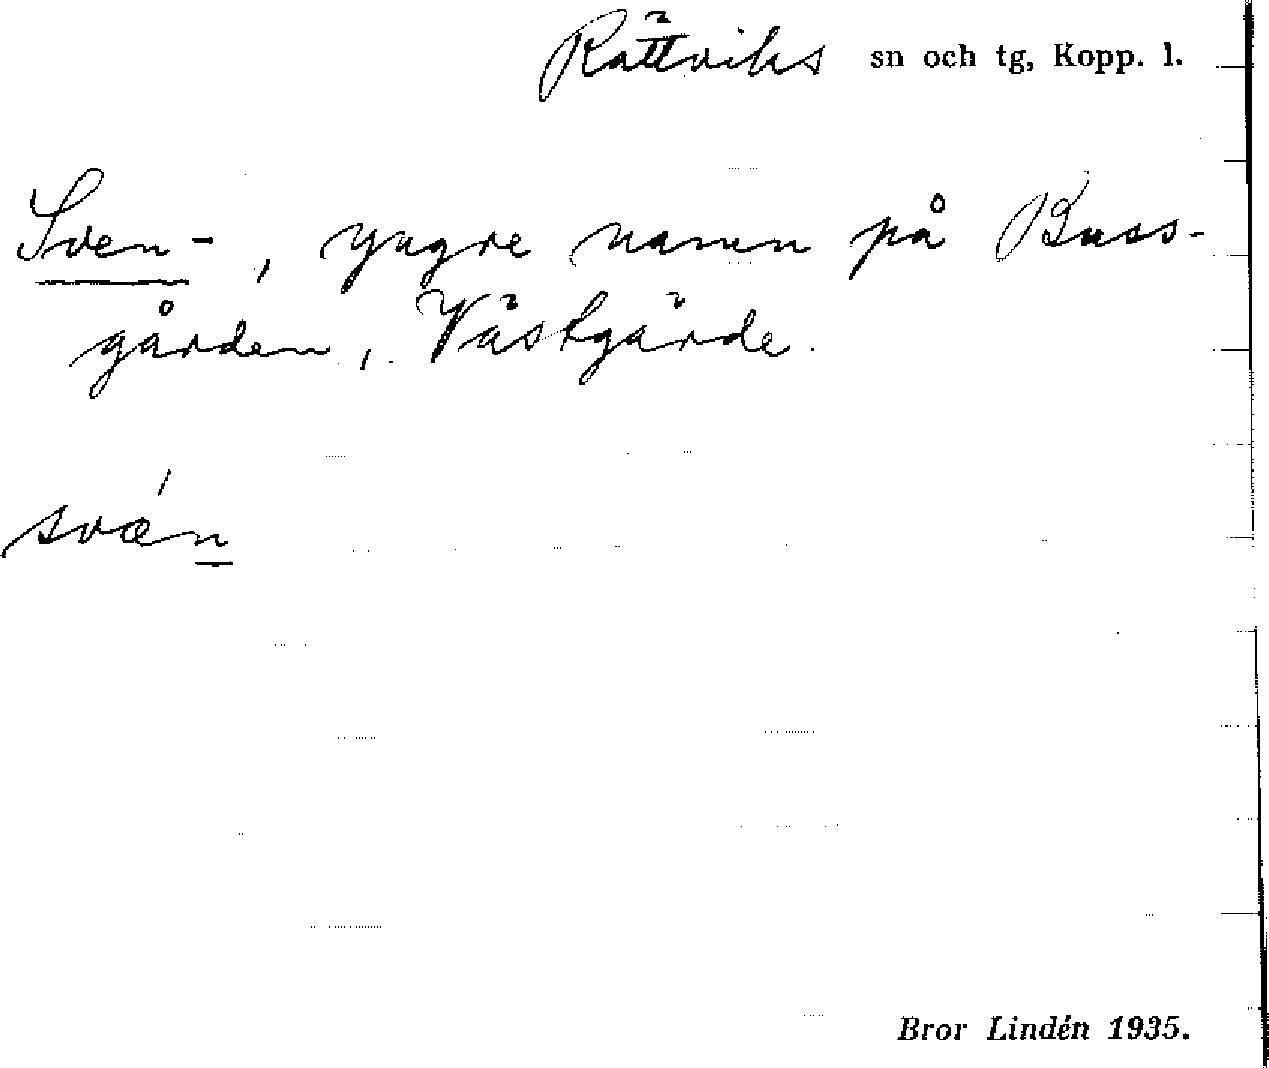 Rättviks sn och tg, Kopp. l.
Sven-, yngre namn på Buss-
gården, Västgärde.
svǽn
Bror Lindén 1935.